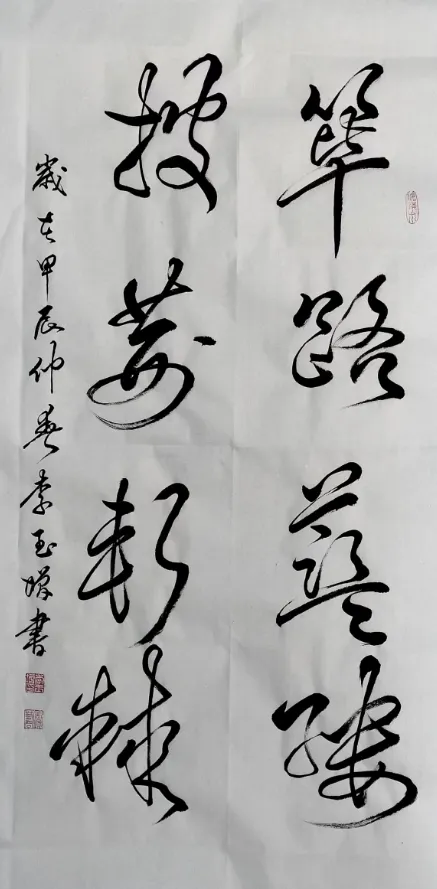 篳路藍縷
披荊斬棘
歲在甲辰仲春李玉書